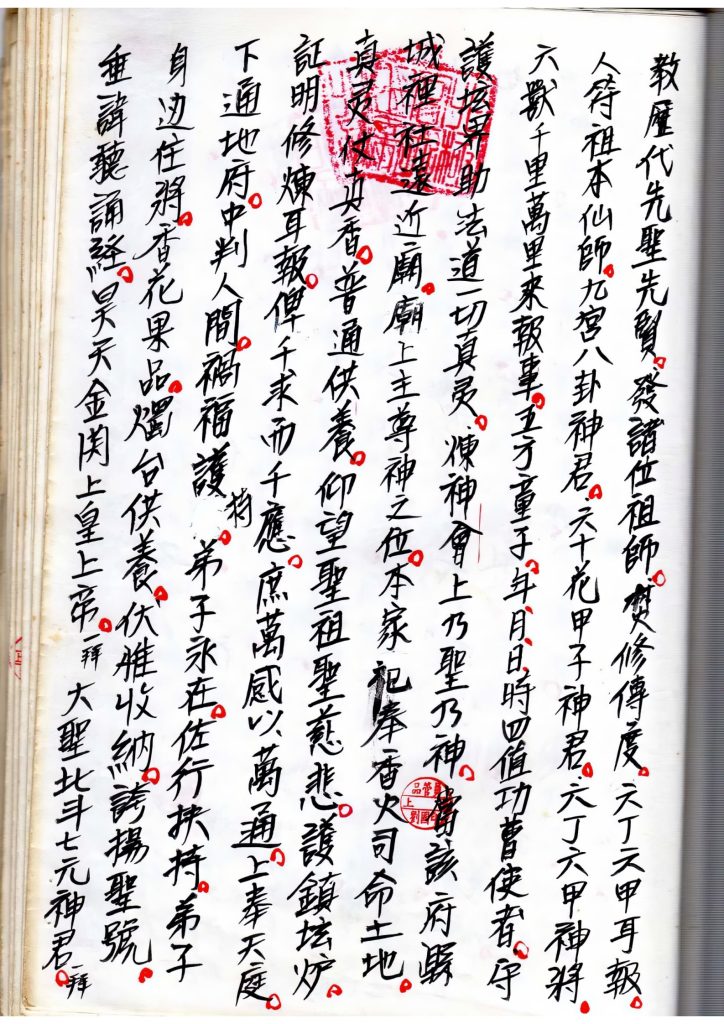 教歷代先聖先賢。發諸位祖師。焚修傳度。六丁六甲耳報。
人符祖本仙師。九宮八卦神君。六十花甲子神君。六丁六甲神將。
六獸千里萬里來報事。五方童子。年、月、日、時四值功曹使者。守
護坛昇助法道一切真灵。煉神會上乃聖乃神。當該府縣
城裡社遠近廟。廟上主尊神之位。本家祀奉香火司命土地。
真灵仗真香。普通供養。仰望聖祖聖慈悲。護鎮坛炉。
証明修煉耳報。俾千求而千應。庶萬感以萬通。上奉天庭。
下通地府。中判人間。禍福護持。弟子永在。佐行扶持。弟子
身边住將。香花果品。燭台供養。伏惟收納。誇揚聖號。
垂諱聽誦經。昊天金闕上皇上帝。一拜 大聖北斗七元神君。一拜